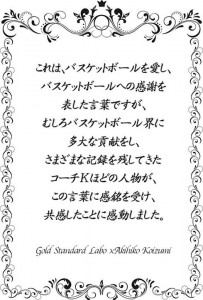 これは、バスケットボールを愛し、
バスケットボールへの感謝を
表した言葉ですが、
むしろバスケットボール界に
多大な貢献をし、
さまざまな記録を残してきた
コーチKほどの人物が、
この言葉に感銘を受け、
共感したことに感動しました。
Gold Standard Labo ×Akihiko Koizumi